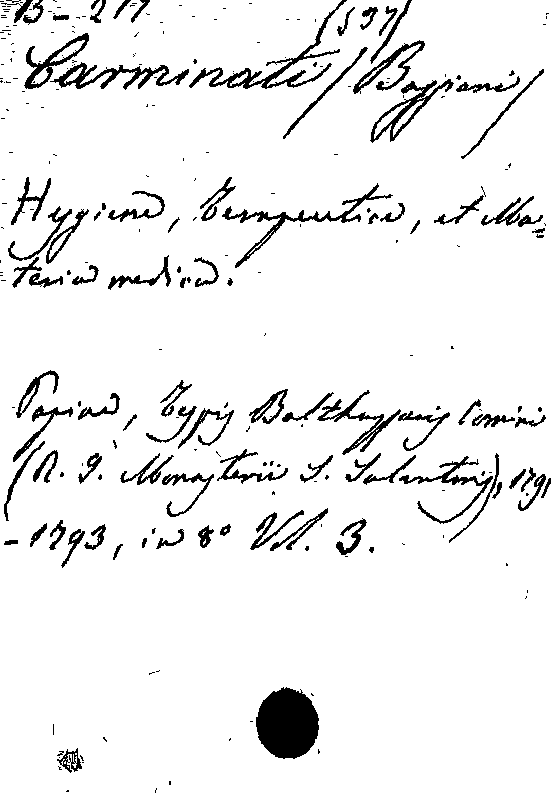 B- 217
(537)
Carminati / Bassiani /
Hygiene, Terapeutice, et Ma=
teria medica.
Papiae, Typis Balthassaris Comini
(R. I. Monasterii S. Salvatoris), 1791
-1793, in 8° Vol. 3.